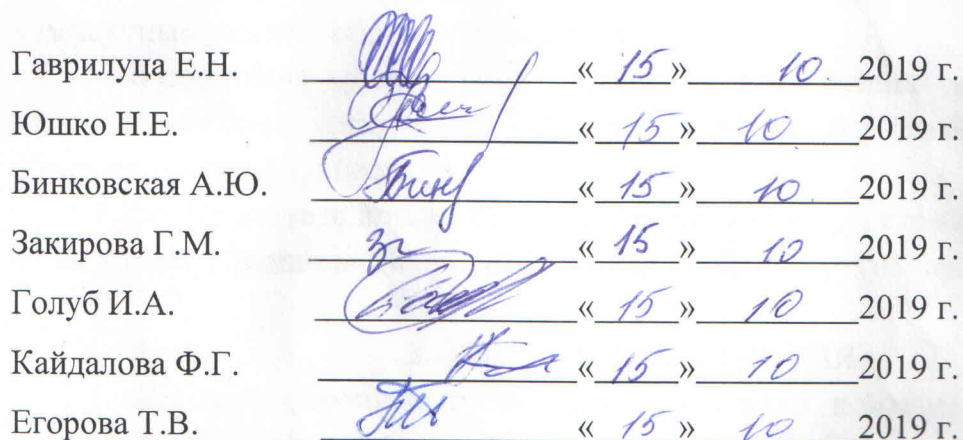 Гаврилуца Е.Н. « 15 » 10. 2019 г.
Юшко Н.Е. « 15 » 10 2019 г.
Бинковская А.Ю. « 15 » 10. 2019 г.
Закирова Г.М. « 15 » 10 2019 г.
Голуб И.А. « 15 » 10 2019 г.
Кайдалова Ф.Г. « 15 » 10 2019 г.
Егорова Т.В. « 15 » 10 2019 г.